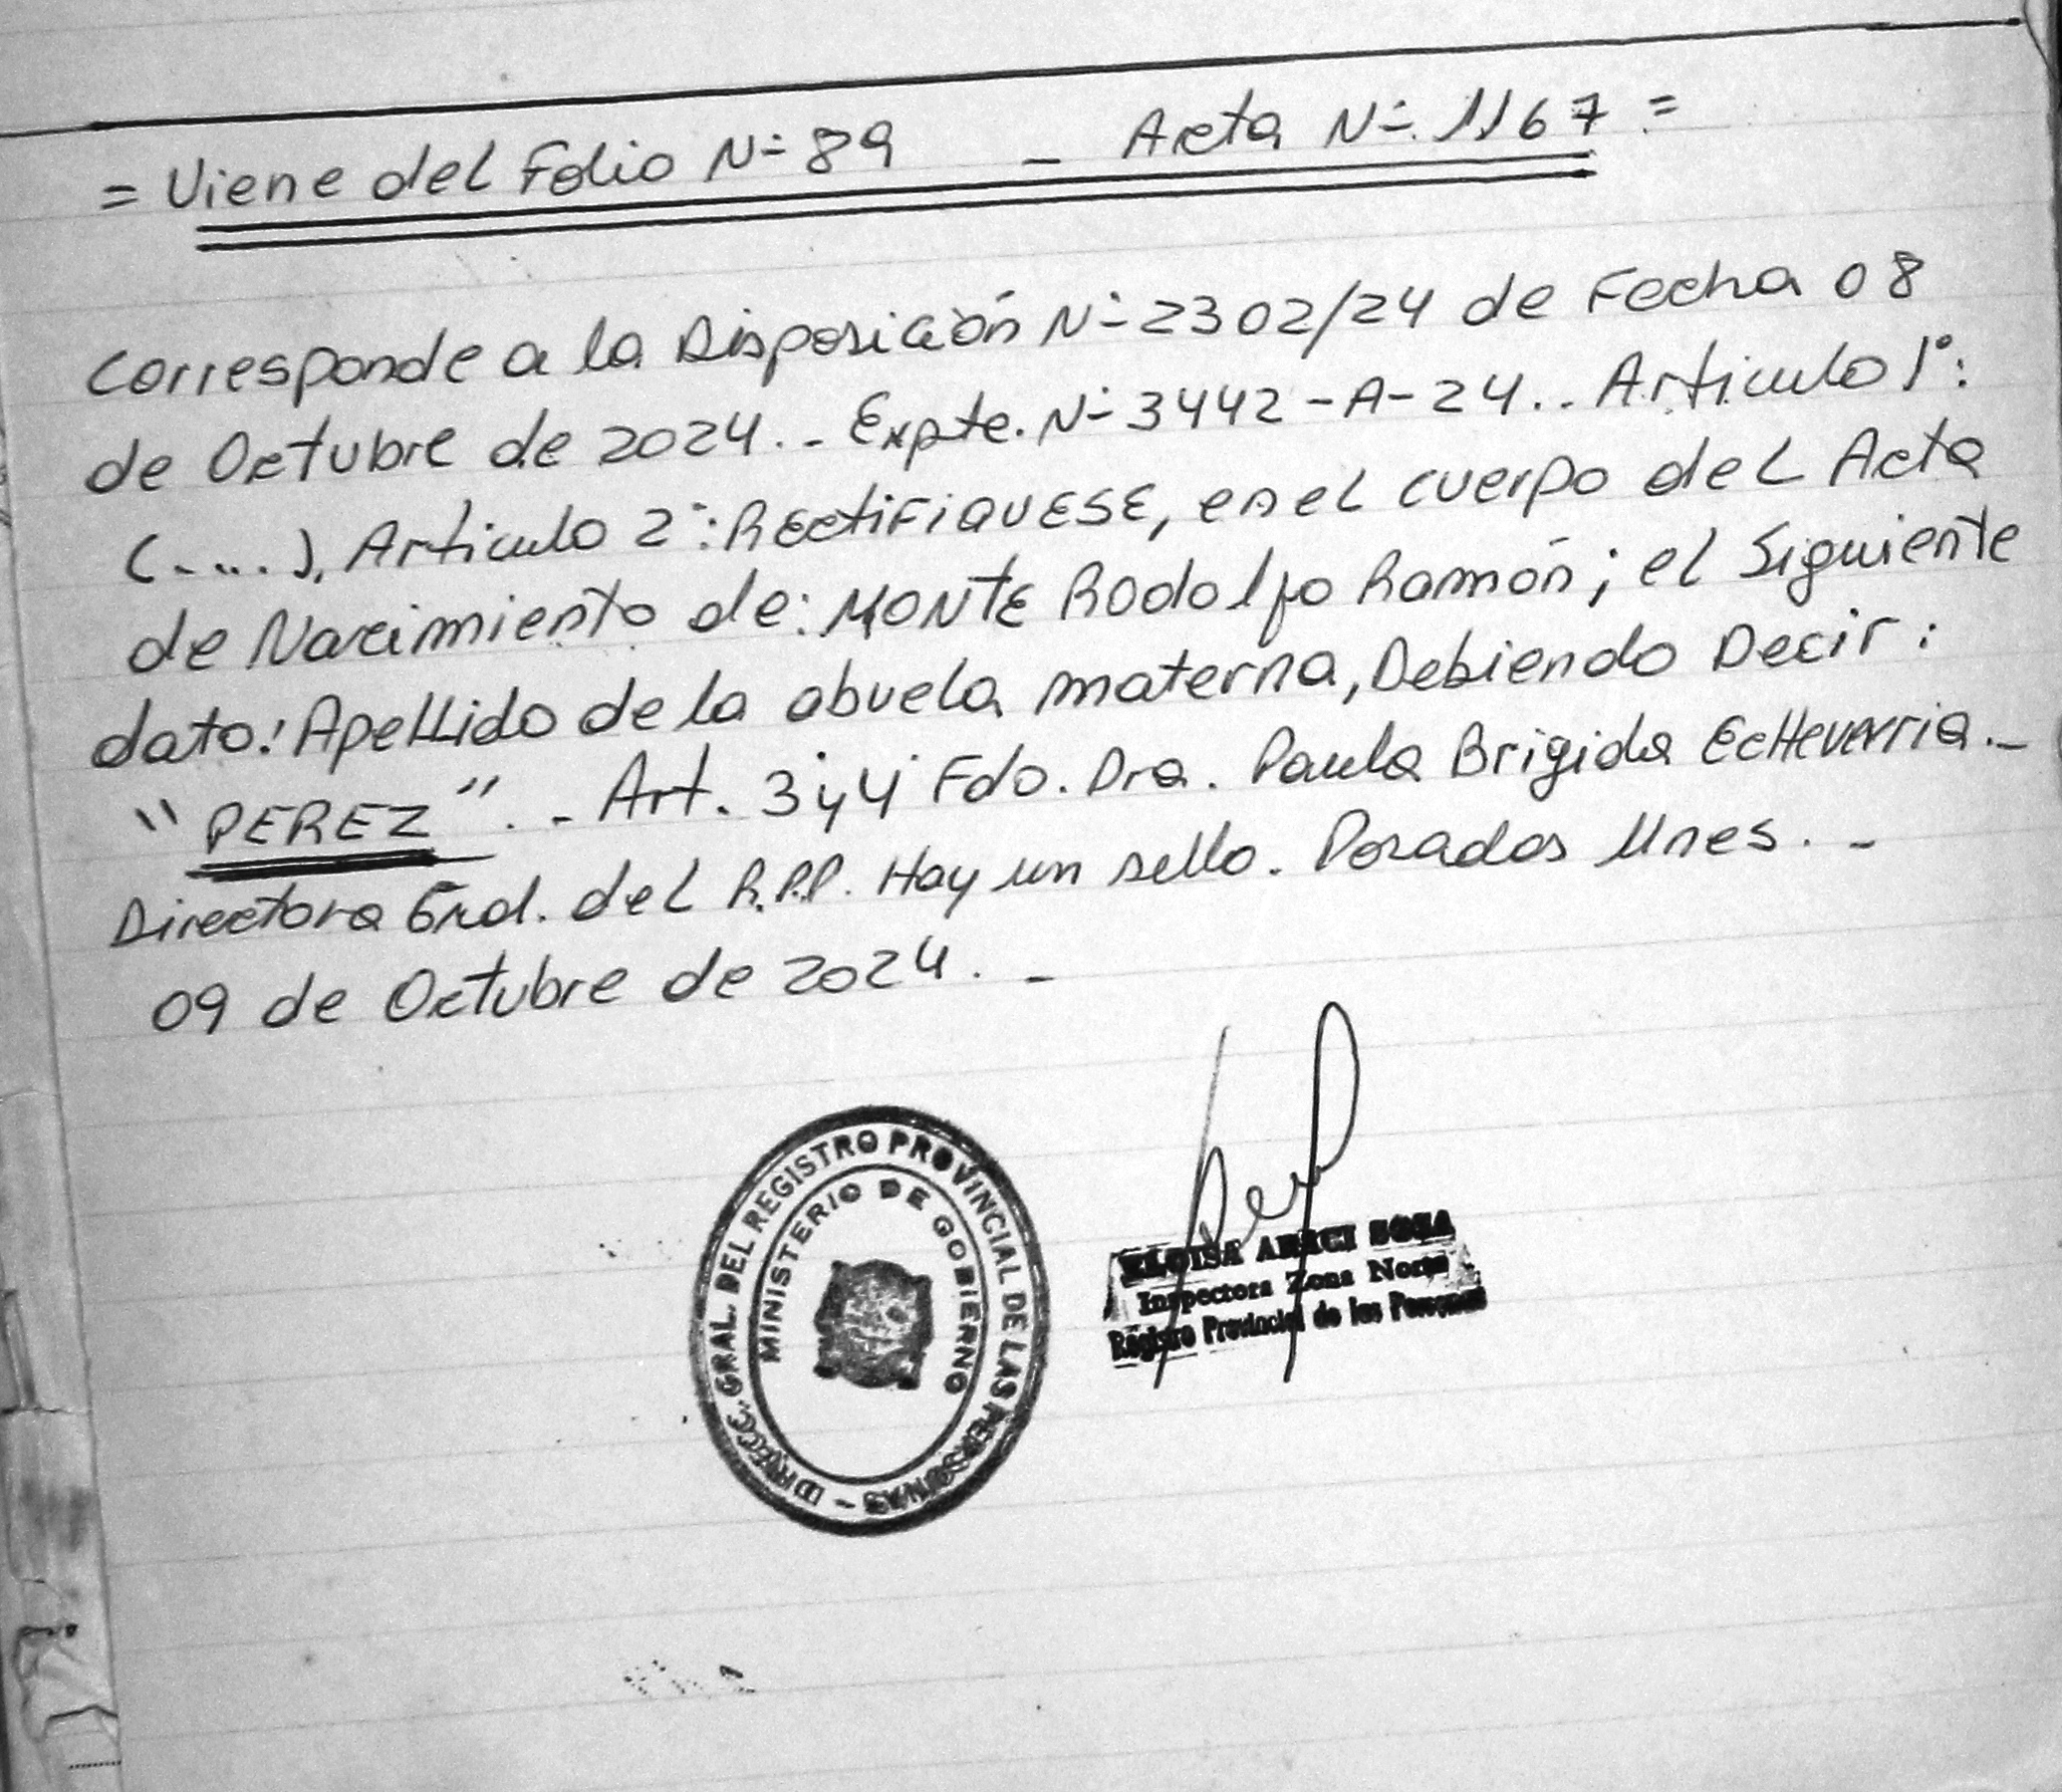 = Viene del Folio N° 89 - Acta N° 1167 =
Corresponde a la Disposición N° 2302/24 de Fecha 08
de Octubre de 2024.- Expte. N° 3442-A-24.. Articulo 1°:
(.....), Articulo 2°: RECTIFIQUESE, en el cuerpo del Acta
de Nacimiento de: MONTE Rodolfo Ramón; el Siguiente
dato: Apellido de la abuela materna, Debiendo Decir:
"PEREZ".- Art. 3 y 4 Fdo. Dra. Paula Brigida Echeverria.-
Directora Gral. del R.P.P. Hay un sello. Posadas Mnes. -
09 de Octubre de 2024. -
DIRECC. GRAL. DEL REGISTRO PROVINCIAL DE LAS PERSONAS -
MINISTERIO DE GOBIERNO
ELOISA SOSA
Inspectora Zona Norte
Registro Provincial de las Personas